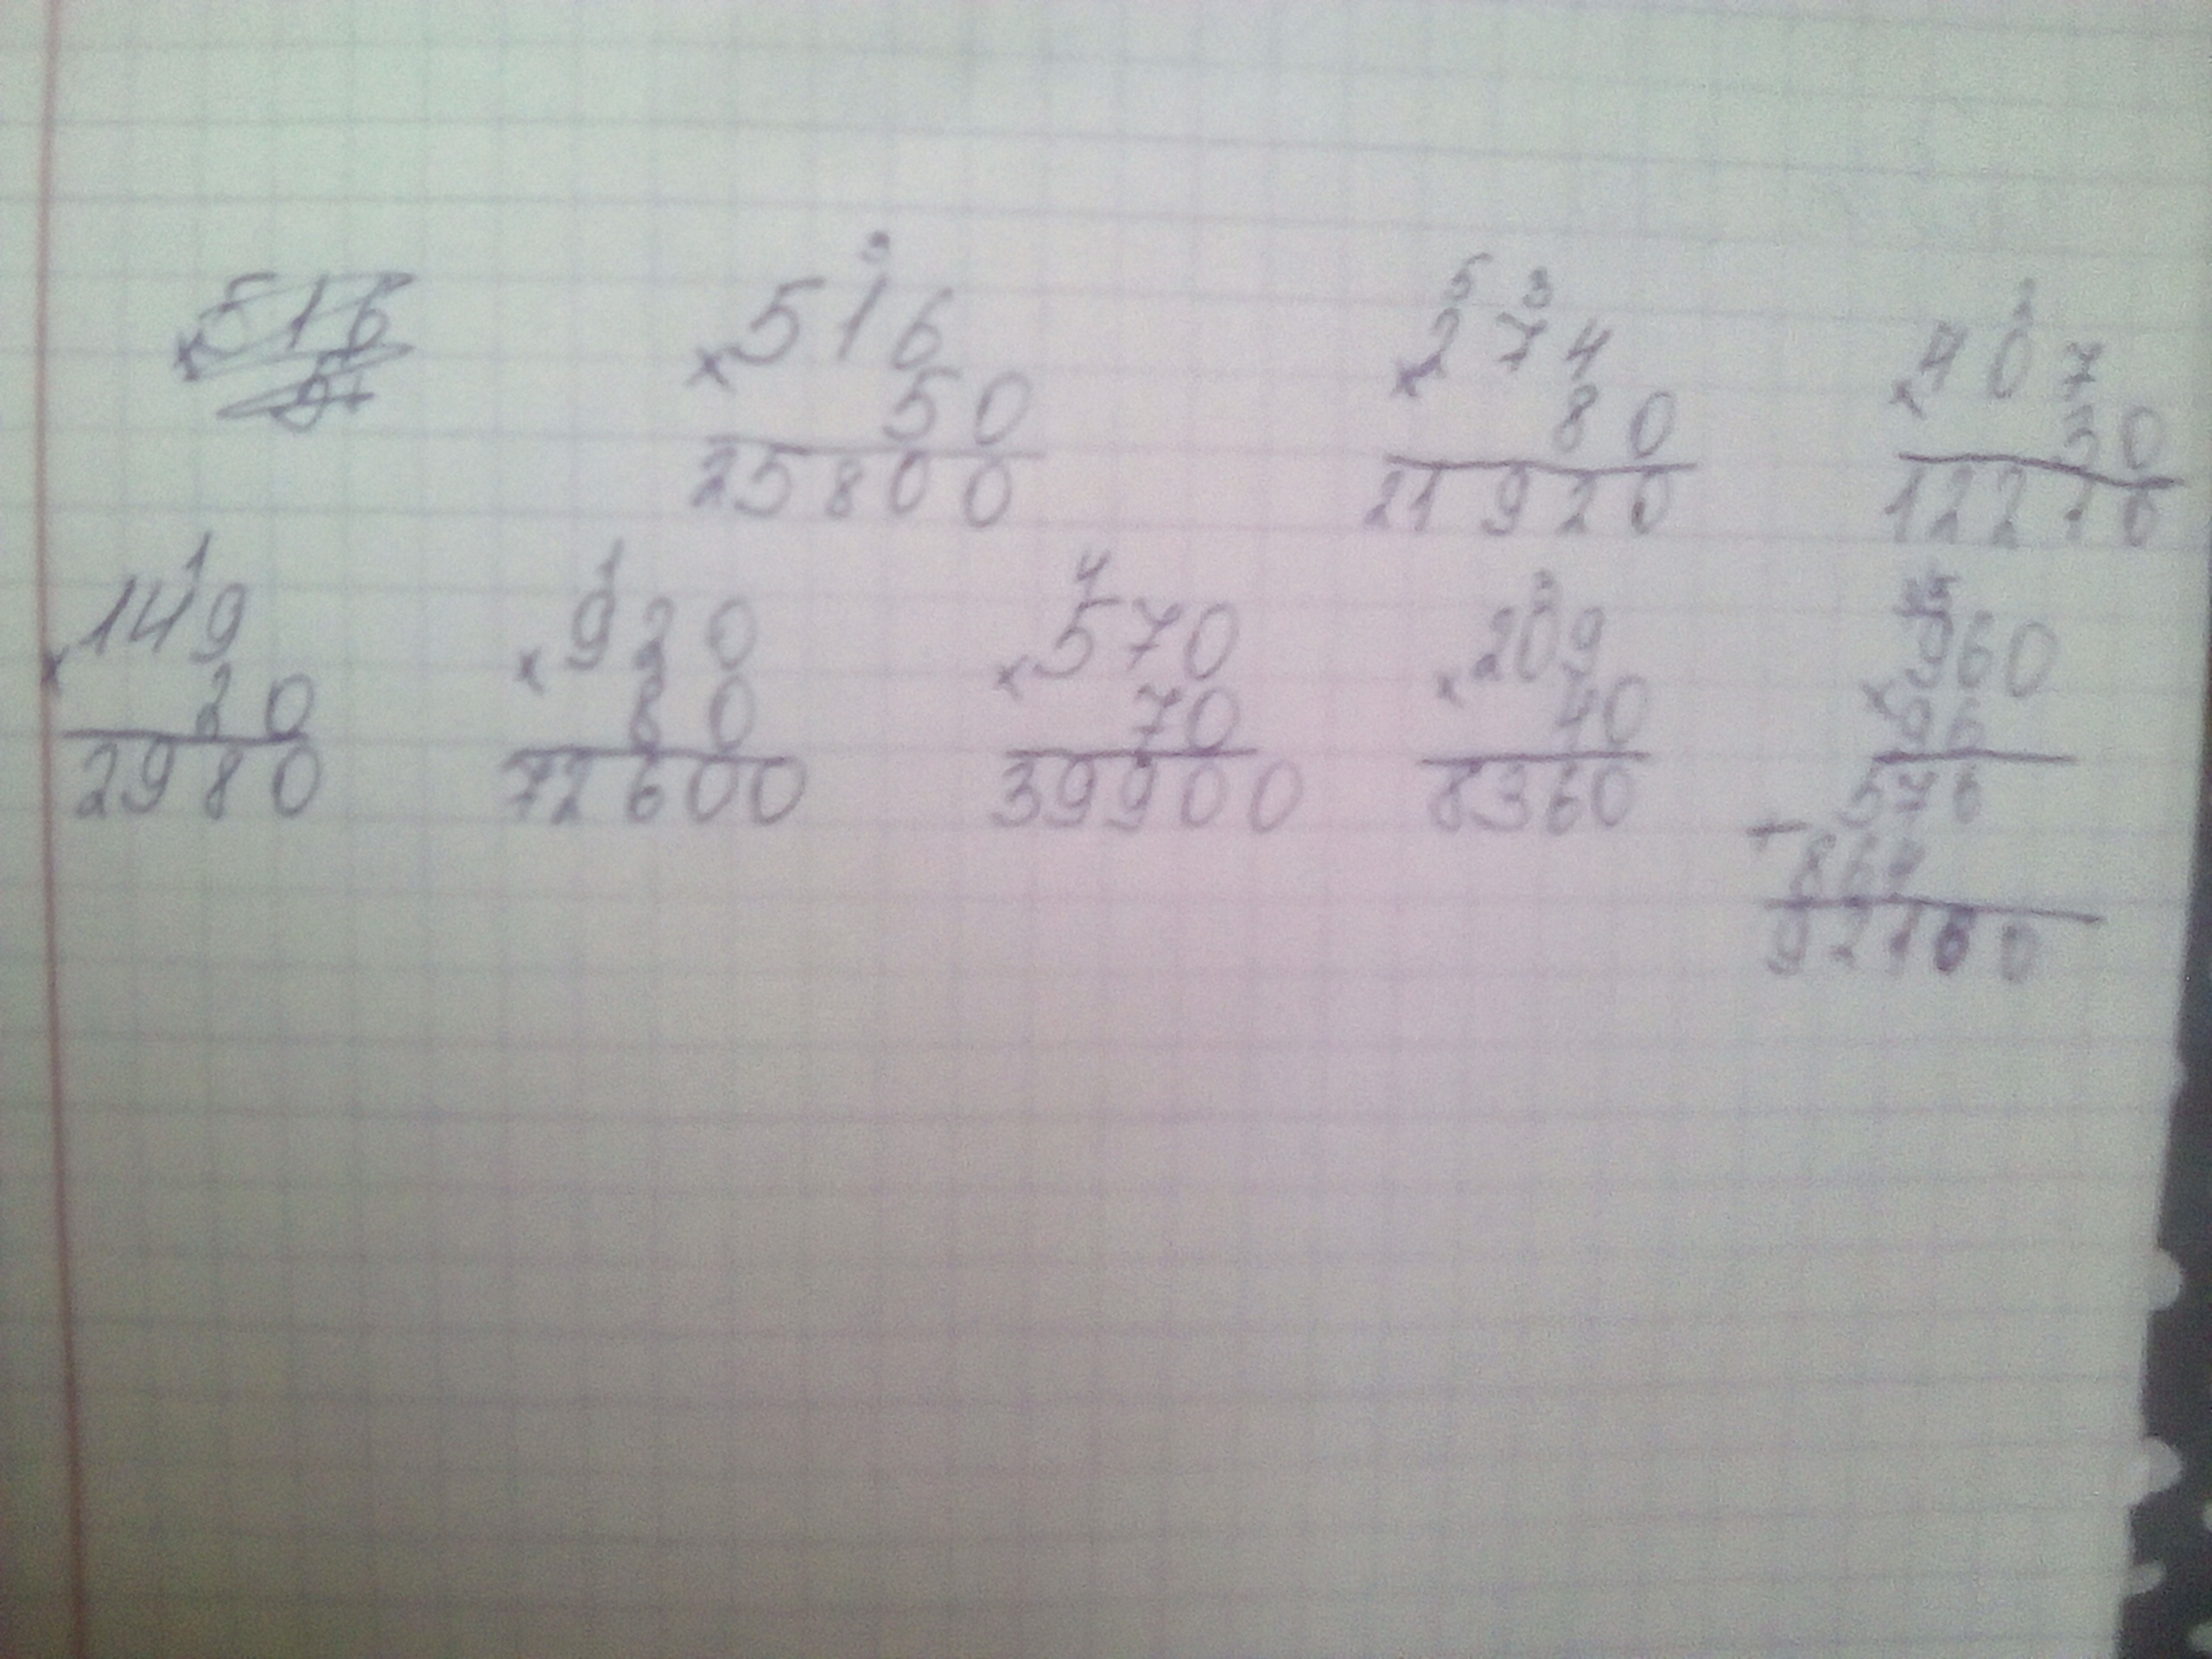 3 5 3 2
× 516 × 274 × 407
50 80 30
25800 21920 12210
1 1 4 3
× 149 × 920 × 570 × 209 × 960
20 80 70 40 96
2980 72600 39900 8360 576
+ 864
92160